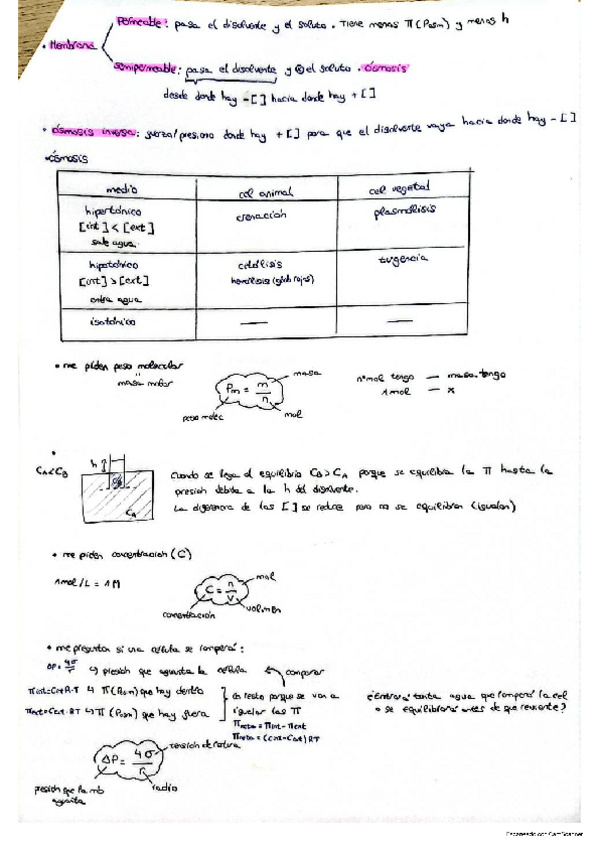 Permeable: pasa el disolvente y el soluto. Tiene menos π (Posm) y menos h
• Membrana
semipermeable: pasa el disolvente y el soluto. Ósmosis
desde donde hay - [ ] hacia donde hay + [ ]
• Ósmosis inversa: fuerza/presiono donde hay + [ ] para que el disolvente vaya hacia donde hay - [ ]
• Ósmosis
medio cel animal cel vegetal
hipertónico crenación plasmólisis
[int] < [ext]
sale agua
hipotónico citólisis turgencia
[int] > [ext] hemólisis (glób rojos)
entra agua
isotónico — —
• me piden peso molecular
masa molar
Pm = m/n
masa
peso molec
mol
nºmol tengo — masa tengo
1 mol — x
h
CA < CB
CB
CA
Cuando se llega al equilibrio CB > CA porque se equilibra la π hasta la
presión debida a la h del disolvente.
La diferencia de las [ ] se reduce pero no se equilibran (igualan)
• me piden concentración (C)
1mol/L = 1M
C = n/V
mol
concentración
volumen
• me preguntan si una célula se romperá:
ΔP = 4σ/r ↳ presión que aguanta la célula comparar
πint = Cint R·T ↳ π (Posm) que hay dentro
πext = Cext·RT ↳ π (Posm) que hay fuera
las resto porque se van a
igualar las π
πneta = πint - πext
πneta = (Cint - Cext) RT
¿Entrará tanta agua que romperá la cel
o se equilibrará antes de que reviente?
ΔP = 4σ/R
tensión de rotura
presión que la mb
aguanta
radio
Escaneado con CamScanner